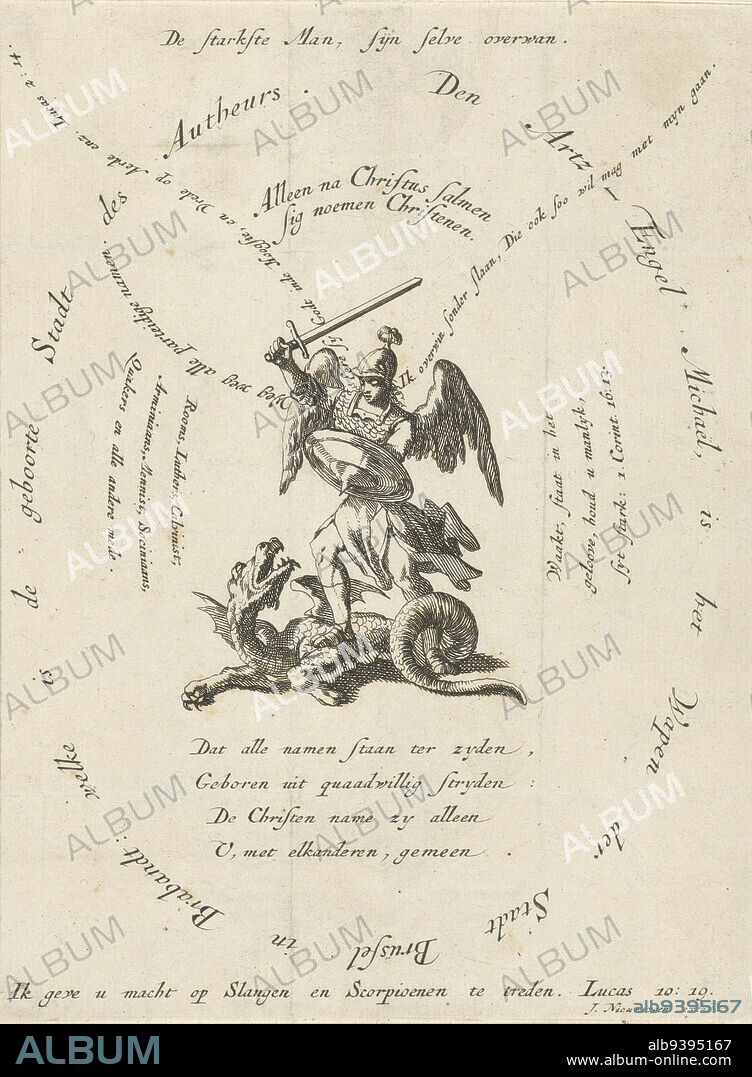 De starkste Man, sijn selve overwan.
Den Artz-Engel Michaël, is het Wapen der Stadt Brussel in Brabandt: welke is de geboorte Stadt des Autheurs.
Alleen na Christus salmen
sig noemen Christenen.
Godt inde Hoogste, en Vrede op Aerde enz. Lucas 2:14.
Ik overwin sonder slaan, Die ook soo wil mag met myn gaan.
Weg weg alle parteidige namen.
Rooms, Luthers, Calvinist,
Arminiaans, Mennist, Sociniaans,
Quakers en alle andere mede.
Waakt, staat in het
geloove, houd u manlyk,
syt stark: 1. Corint. 16:13.
Dat alle namen staan ter zyden,
Geboren uit quaadwillig stryden:
De Christen name zy alleen
U, met elkanderen, gemeen.
Ik geve u macht op Slangen en Scorpioenen te treden. Lucas 10:19.
alb9395167
ALBUM
alb9395167
www.album-online.com